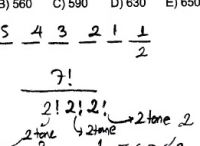 B) 560 C) 590 D) 630 E) 650
5 4 3 2 1 1
2
7!
2! 2! 2! → 2 tane 2
2 tane → 2 tane